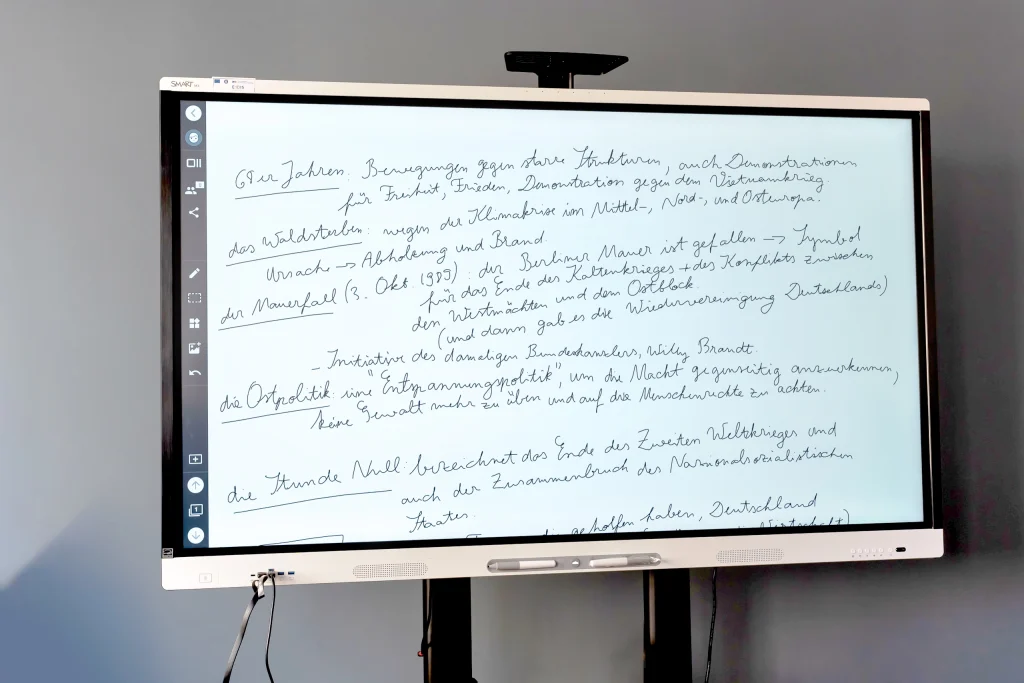 SMART
68er Jahren: Bewegungen gegen starre Strukturen, auch Demonstrationen
für Freiheit, Frieden, Demonstration gegen dem Vietnamkrieg.
das Waldsterben: wegen der Klimakrise im Mittel-, Nord-, und Osteuropa.
Ursache → Abholzung und Brand.
der Mauerfall (3. Okt. 1989): der Berliner Mauer ist gefallen → Symbol
für das Ende des Kaltenkrieges + des Konflikts zwischen
den Westmächten und dem Ostblock.
(und dann gab es die Wiedervereinigung Deutschlands)
- Initiative des damaligen Bundeskanzlers, Willy Brandt.
die Ostpolitik: eine "Entspannungspolitik", um die Macht gegenseitig anzuerkennen,
keine Gewalt mehr zu üben und auf die Menschenrechte zu achten.
die Stunde Null: bezeichnet das Ende des Zweiten Weltkrieges und
auch der Zusammenbruch des Nazionalsozialistischen
Staates.
die geholfen haben, Deutschland